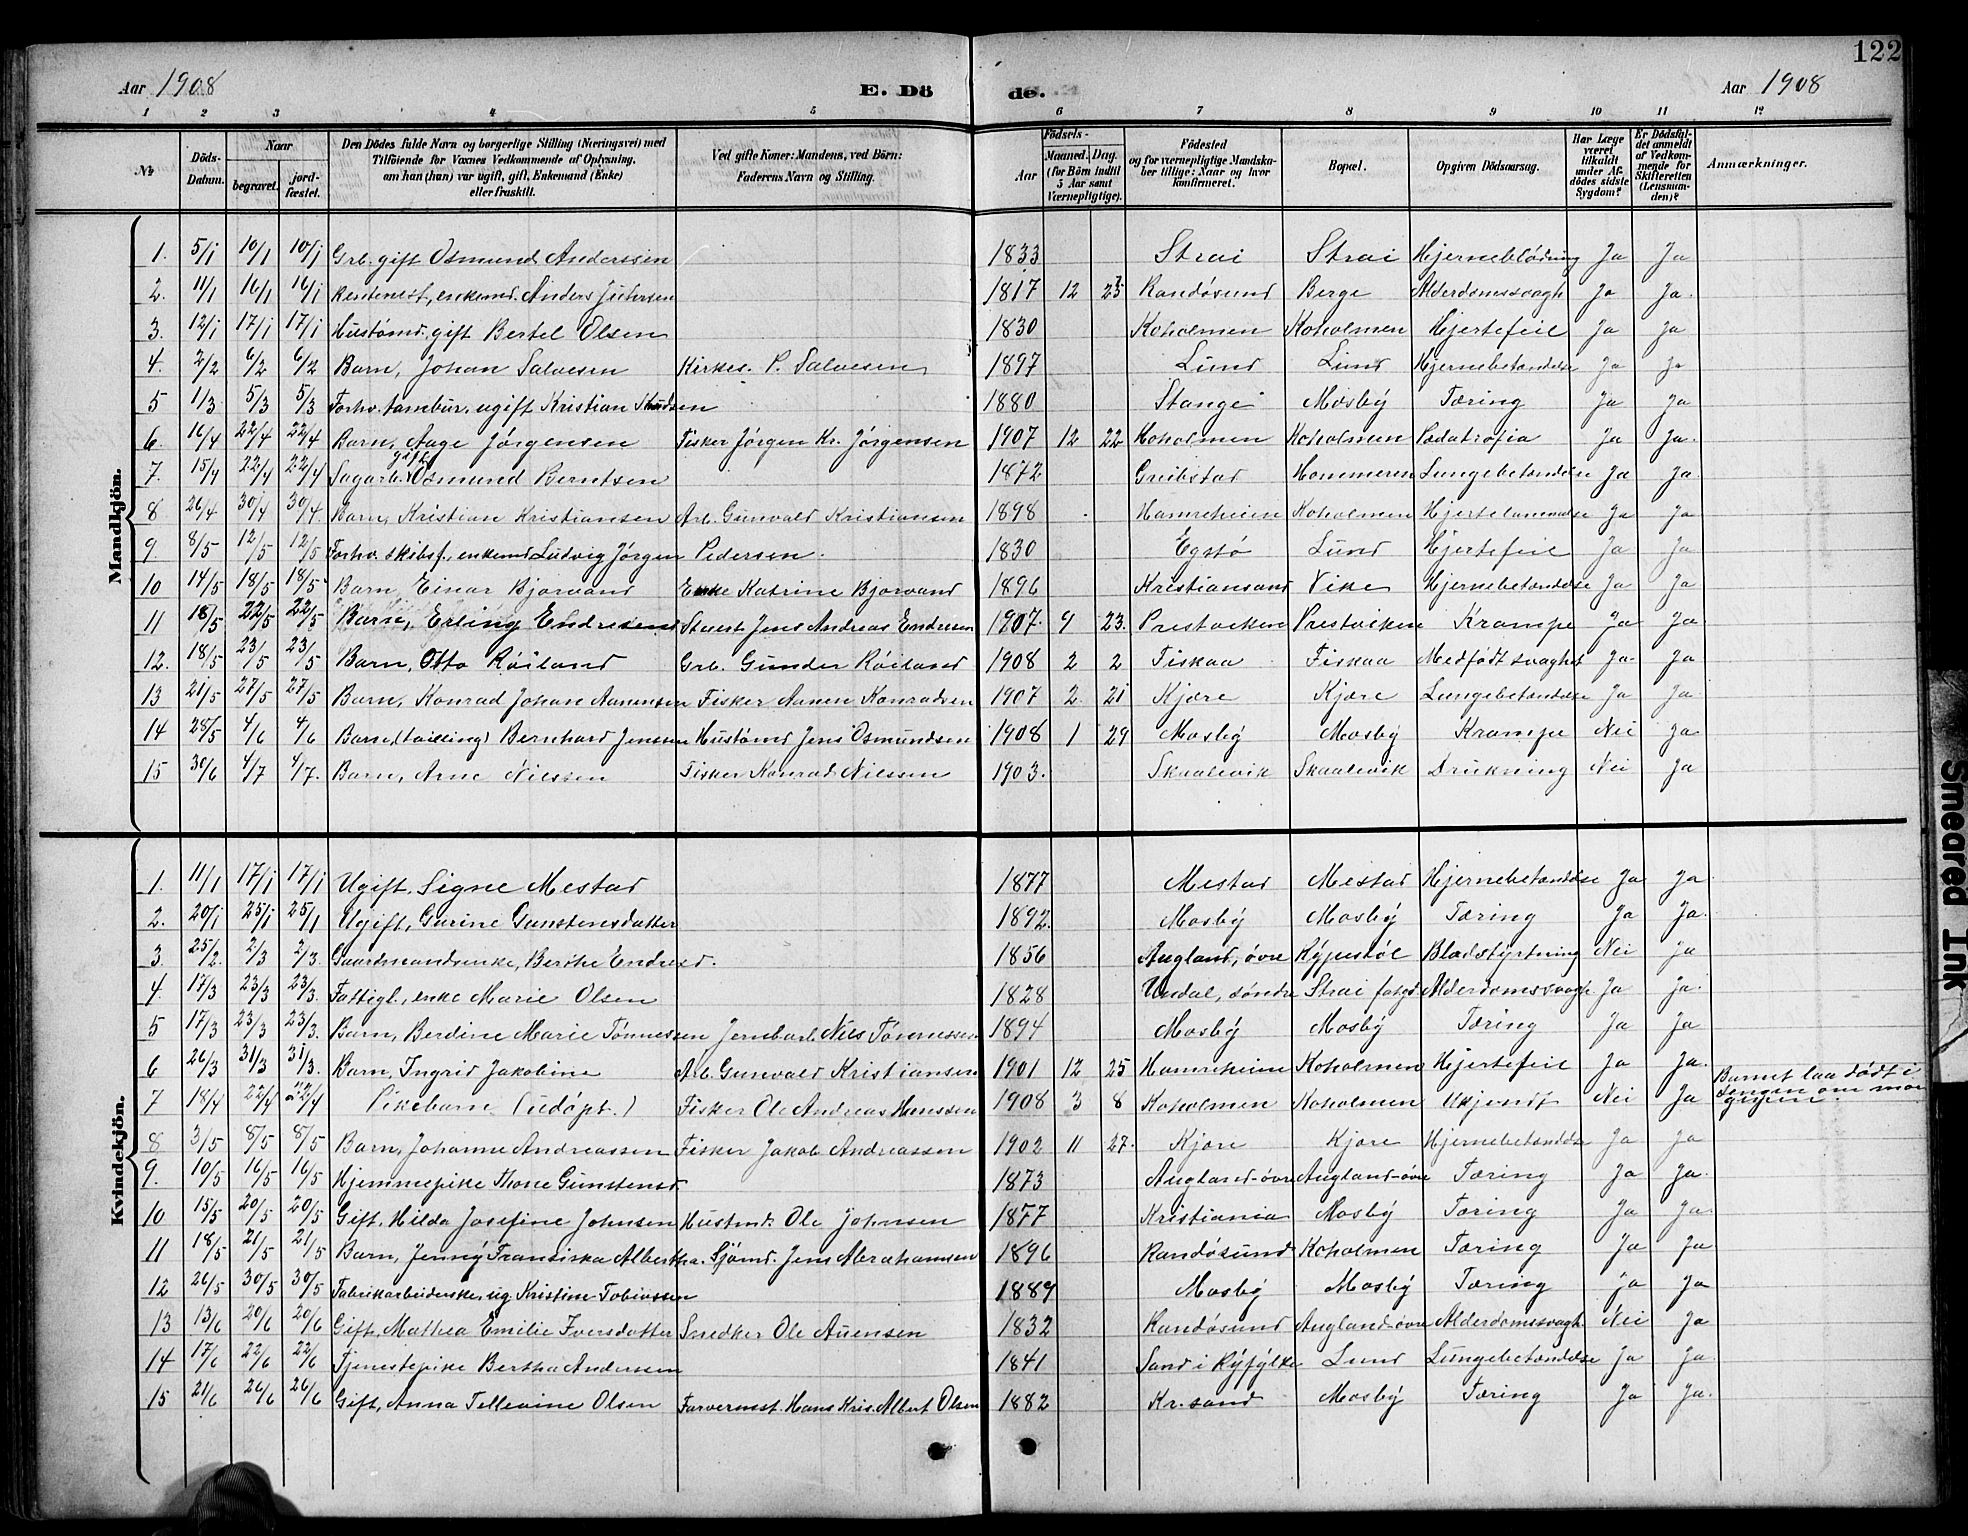 122
Aar 1908 E. Dö de. Aar 1908
1 2 3 4 5 6 7 8 9 10 11 12
No
Döds-Datum.
Naar
begravet.
jordfæstet.
Den Dödes fulde Navn og borgerlige Stilling (Næringsvei) med
Tilföiende for Voxnes Vedkommende af Oplysning,
om han (hun) var ugift, gift, Enkemand (Enke)
eller fraskilt.
Ved gifte Koner: Mandens, ved Börn:
Faderens Navn og Stilling.
Födsels-
Aar
Maaned. Dag.
(for Börn indtil
5 Aar samt
Værnepligtige).
Födested
og for værnepligtige Mandska-
ber tillige: Naar og hvor
konfirmeret.
Bopæl.
Opgiven Dödsaarsag.
Har Læge
været
tilkaldt
under Af-
dödes sidste
Sygdom?
Er Dödsfal-
det anmeldt
af Vedkom-
mende for
Skifteretten
(Lensman-
den)?
Anmærkninger.
Mandkjön.
1. 5/1 10/1 10/1 Grb. gift Osmund Anderssen 1833 Strai Strai Hjerneblödning Ja Ja
2. 11/1 16/1 16/1 Rentenist, enkemd. Anders 1817 12 Randøsund Berge Alderdomssvagh Ja Ja.
3. 12/1 17/1 17/1 Hustømd. gift Bertel Olsen 1830 Koholmen Koholmen Hjertefeil Ja Ja
4. 2/2 6/2 6/2 Barn, Johan Salvesen Kirkes. P. Salvesen 1897 Lund Lund Hjernebetændelse Ja Ja
5 1/3 5/3 5/3 Forhv. tambur, ugift Kristian 1880 Stange Mosby Tæring Ja Ja
6. 16/4 22/4 22/4 Barn, Aage Jørgensen Fisker Jørgen Kr. Jørgensen 1907 12 22 Koholmen Koholmen Pædatrofia Ja Ja.
7. 15/4 22/4 22/4 Sagarb. gift Osmund Berntsen 1872 Greibstad Hommeren Lungebetændelse Ja Ja
8 26/4 30/4 30/4. Barn, Kristian Kristiansen Arb. Gunvald Kristiansen 1898 Hamreheien Koholmen Hjertelammelse Ja Ja
9. 8/5 12/5 12/5 Forhv. skibsf., enkemd Ludvig Jörgen Pedersen. 1830 Egstø Lund Hjertefeil Ja Ja
10 14/5 18/5 18/5 Barn, Einar Bjorvand Enke Katrine Bjorvand 1896 Kristiansand Vike Hjernebetændelse Ja Ja
11 18/5 22/5 22/5 Barn, Erling Endresen Stuert Jens Andreas Endresen 1907. 9 23. Prestviken Prestviken Krampe Ja Ja
12. 18/5 23/5 23/5 Barn, Otto Röiland Grb. Gunder Röiland 1908 2 2 Fiskaa Fiskaa Medfödt svaghet Ja. Ja
13 21/5 27/5 27/5 Barn, Konrad Johan Aanensen Fisker Aanen Konradsen 1907 2 21 Kjære Kjære Lungebetændelse Ja Ja
14 28/5 4/6 4/6 Barn, (tvilling) Bernhard Jensen Hustømd Jens Osmundsen 1908 1 29 Mosby Mosby Krampe Nei Ja
15 30/6 4/7 4/7. Barn, Arne Nilssen Fisker Konrad Nilssen 1903. Skaalevik Skaalevik Drukning Nei Ja
Kvindekjön.
1. 11/1 17/1 17/1 Ugift, Signe Mestad 1877 Mestad Mestad Hjernebetændelse Ja Ja
2. 20/1 25/1 25/1 Ugift, Gurine Gunstensdatter 1892. Mosby Mosby Tæring Ja Ja.
3. 25/2 2/3 2/3. Gaardmandsenke, Berthe Endresd. 1856 Augland, øvre Rypestöl Blodstyrtning Nei Ja
4. 17/3 23/3 23/3. Fattigl., enke Marie Olsen 1828 Undal, søndre Strai fatgd. Alderdomssvagh Ja Ja.
5 17/3 23/3 23/3. Barn, Berdine Marie Tønnessen Jernbarb. Nils Tønnessen 1894 Mosby Mosby Tæring Ja Ja
6 26/3 31/3 31/3. Barn, Ingrid Jakobine Arb. Gunvald Kristiansen 1901 12 25 Hamreheien Koholmen Hjertefeil Ja Ja.
7 18/4 22/4 22/4 Pikebarn (udöpt.) Fisker Ole Andreas Hanssen 1908 3 8 Koholmen Koholmen Ukjendt Nei Ja Barnet laa dødt i sengen om morgenen.
8 3/5 8/5 8/5 Barn, Johanne Andreassen Fisker Jakob Andreassen 1902 11 27. Kjøre Kjøre Hjernebetændelse Ja Ja
9. 10/5 16/5 16/5 Hjemmepike Thone Gunstensd. 1873 Augland-øvre Augland-øvre Tæring Ja Ja.
10 15/5 20/5 20/5 Gift, Hilda Josefine Johnsen Hustmd. Ole Johnsen 1877 Kristiania Mosby Tæring Ja Ja.
11 18/5 21/5 21/5 Barn, Jenny Franciska Albertha. Sjömd. Jens Abrahamsen 1896 Randøsund Koholmen Tæring Ja Ja
12 26/5 30/5 30/5 Fabrikarbeiderske, ug. Kristine Tobiassen 1889 Mosby Mosby Tæring Ja Ja
13 13/6 20/6 20/6 Gift, Mathea Emilie Iversdatter Snedker Ole Auensen 1832 Randøsund Augland-øvre Alderdomssvagh. Nei Ja
14 17/6 22/6 22/6 Tjenestepike Bertha Andersen 1841 Sand i Ryfylke Lund Lungebetændelse Ja Ja.
15 21/6 26/6 26/6 Gift, Anna Tellevine Olsen Farvermst. Hans Kris. Albert Olsen 1882 Kr.sand Mosby Tæring Ja Ja.
Smeared Ink